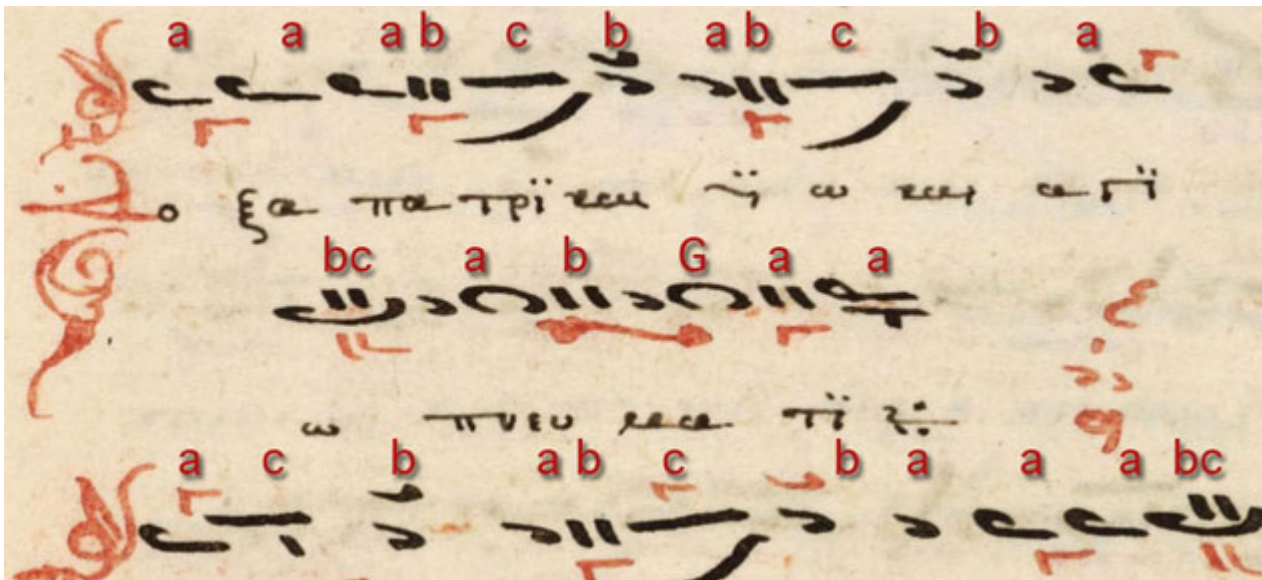 a a a b c b a b c b a
Δο ξα πα τρϊ και ϋϊ ω και α γϊ
bc a b G a a
ω πνευ μα τϊ
a c b a b c b a a a bc